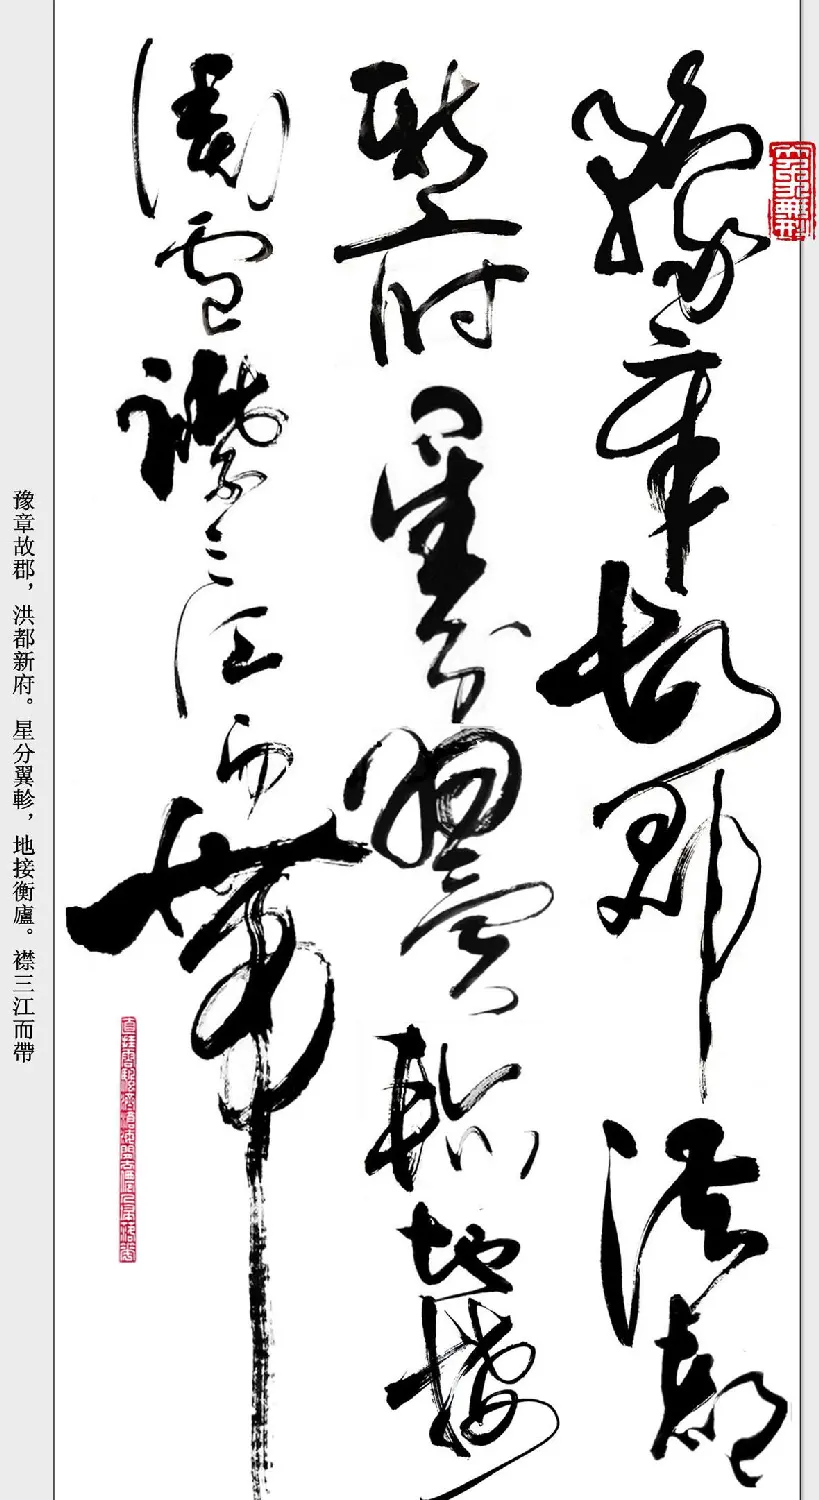 豫章故郡洪都
新府星分翼軫地接
衡廬襟三江而帶
豫章故郡，洪都新府。星分翼軫，地接衡廬。襟三江而帶